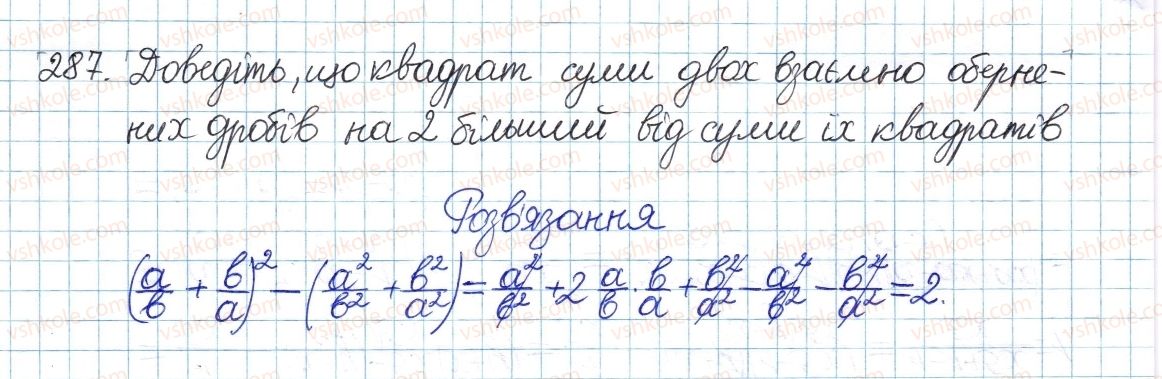 287. Доведіть, що квадрат суми двох взаємно оберне-
них дробів на 2 більший від суми їх квадратів
Розв'язання
(a/b + b/a)² − (a²/b² + b²/a²) = a²/b² + 2 a/b · b/a + b²/a² − a²/b² − b²/a² = 2.
vshkole.com